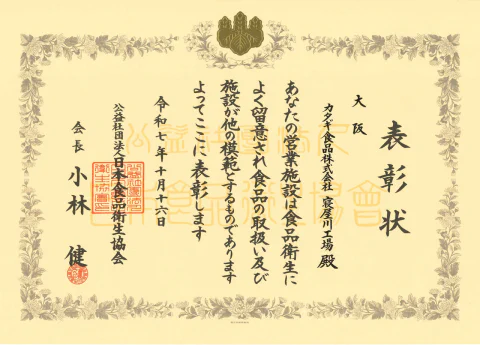 表彰状
大阪
カタギ食品株式会社 寝屋川工場 殿
あなたの営業施設は食品衛生に
よく留意され食品の取扱い及び
施設が他の模範とするものであります
よってここに表彰します
令和七年十月十六日
公益社団法人日本食品衛生協会
会長 小林 健